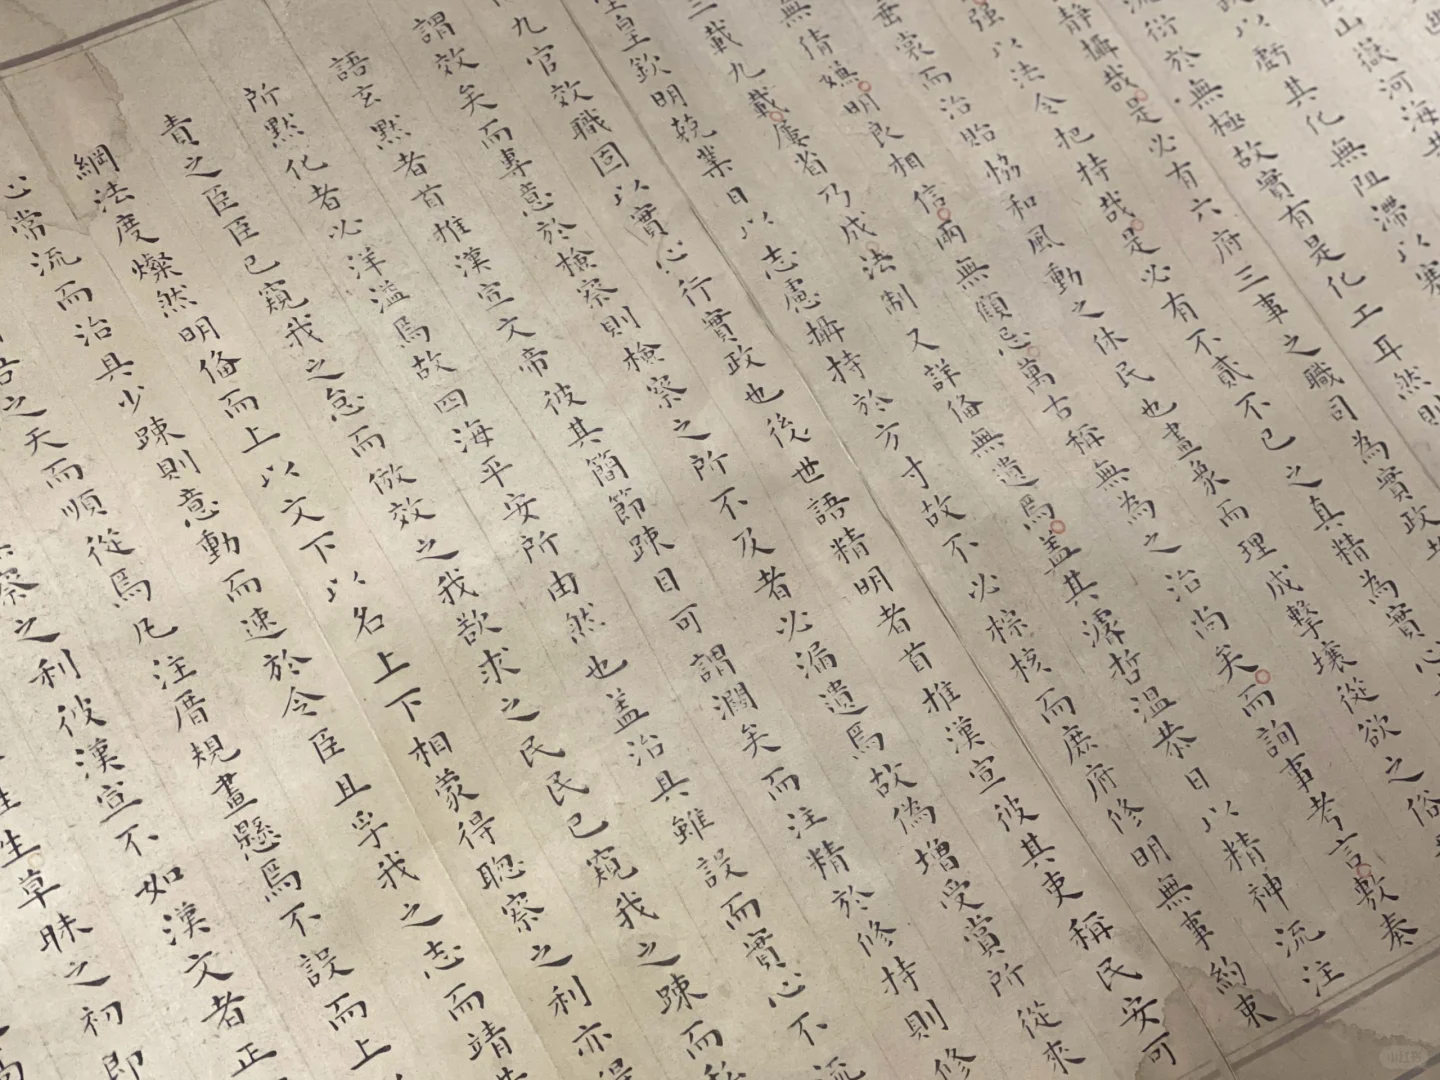 山嶽河海
以虧其化無阻滯以寒
流衍於無極故實有是化工耳然則
靜攝哉是必有六府三事之職司為實政者
强以法令把持哉是必有不貳不已之真精為實心
垂裳而治貽協和風動之休民也畫象而理成擊壤從欲之俗
無倩嫌明良相信兩無顧忌萬古稱無為之治尚矣而詢事考言敷奏
三載九載屢省乃成法制又詳俻無遺焉盖其濬哲温恭日以精神流注
皇欽明兢業日以志慮攝持於方寸故不必綜核而庶府修明無事約束
九官效職固以實心行實政也後世語精明者首推漢宣彼其吏稱民安可
謂效矣而專意於檢察則檢察之所不及者必漏遺焉故偽增受賞所從來
語玄黙者首推漢宣文帝彼其簡節踈目可謂濶矣而注精於修持則修
所黙化者必洋溢焉故四海平安所由然也盖治具雖設而實心不流
責之臣臣已窺我之怠而倣效之我欲求之民民已窺我之踈而私
綱法度燦然明俻而上以文下以名上下相蒙得聰察之利亦得
心常流而治具少踈則意動而速於令臣且孚我之志而靖共
吾之天而順從焉凡注厝規畫懸焉不設而上
察之利彼漢宣不如漢文者正
生草昧之初即